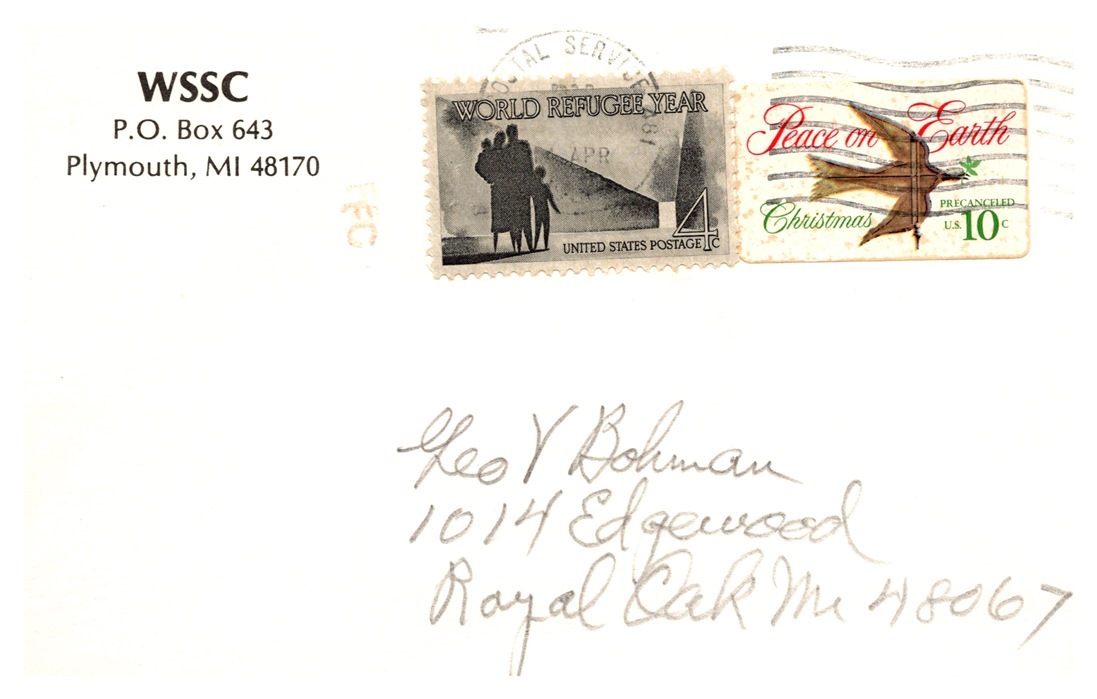 WSSC
P.O. Box 643
Plymouth, MI 48170
POSTAL SERVICE
APR
WORLD REFUGEE YEAR
UNITED STATES POSTAGE 4c
Peace on Earth
Christmas
PRECANCELED
U.S. 10c
Geo V Bohman
1014 Edgewood
Royal Oak Mi 48067